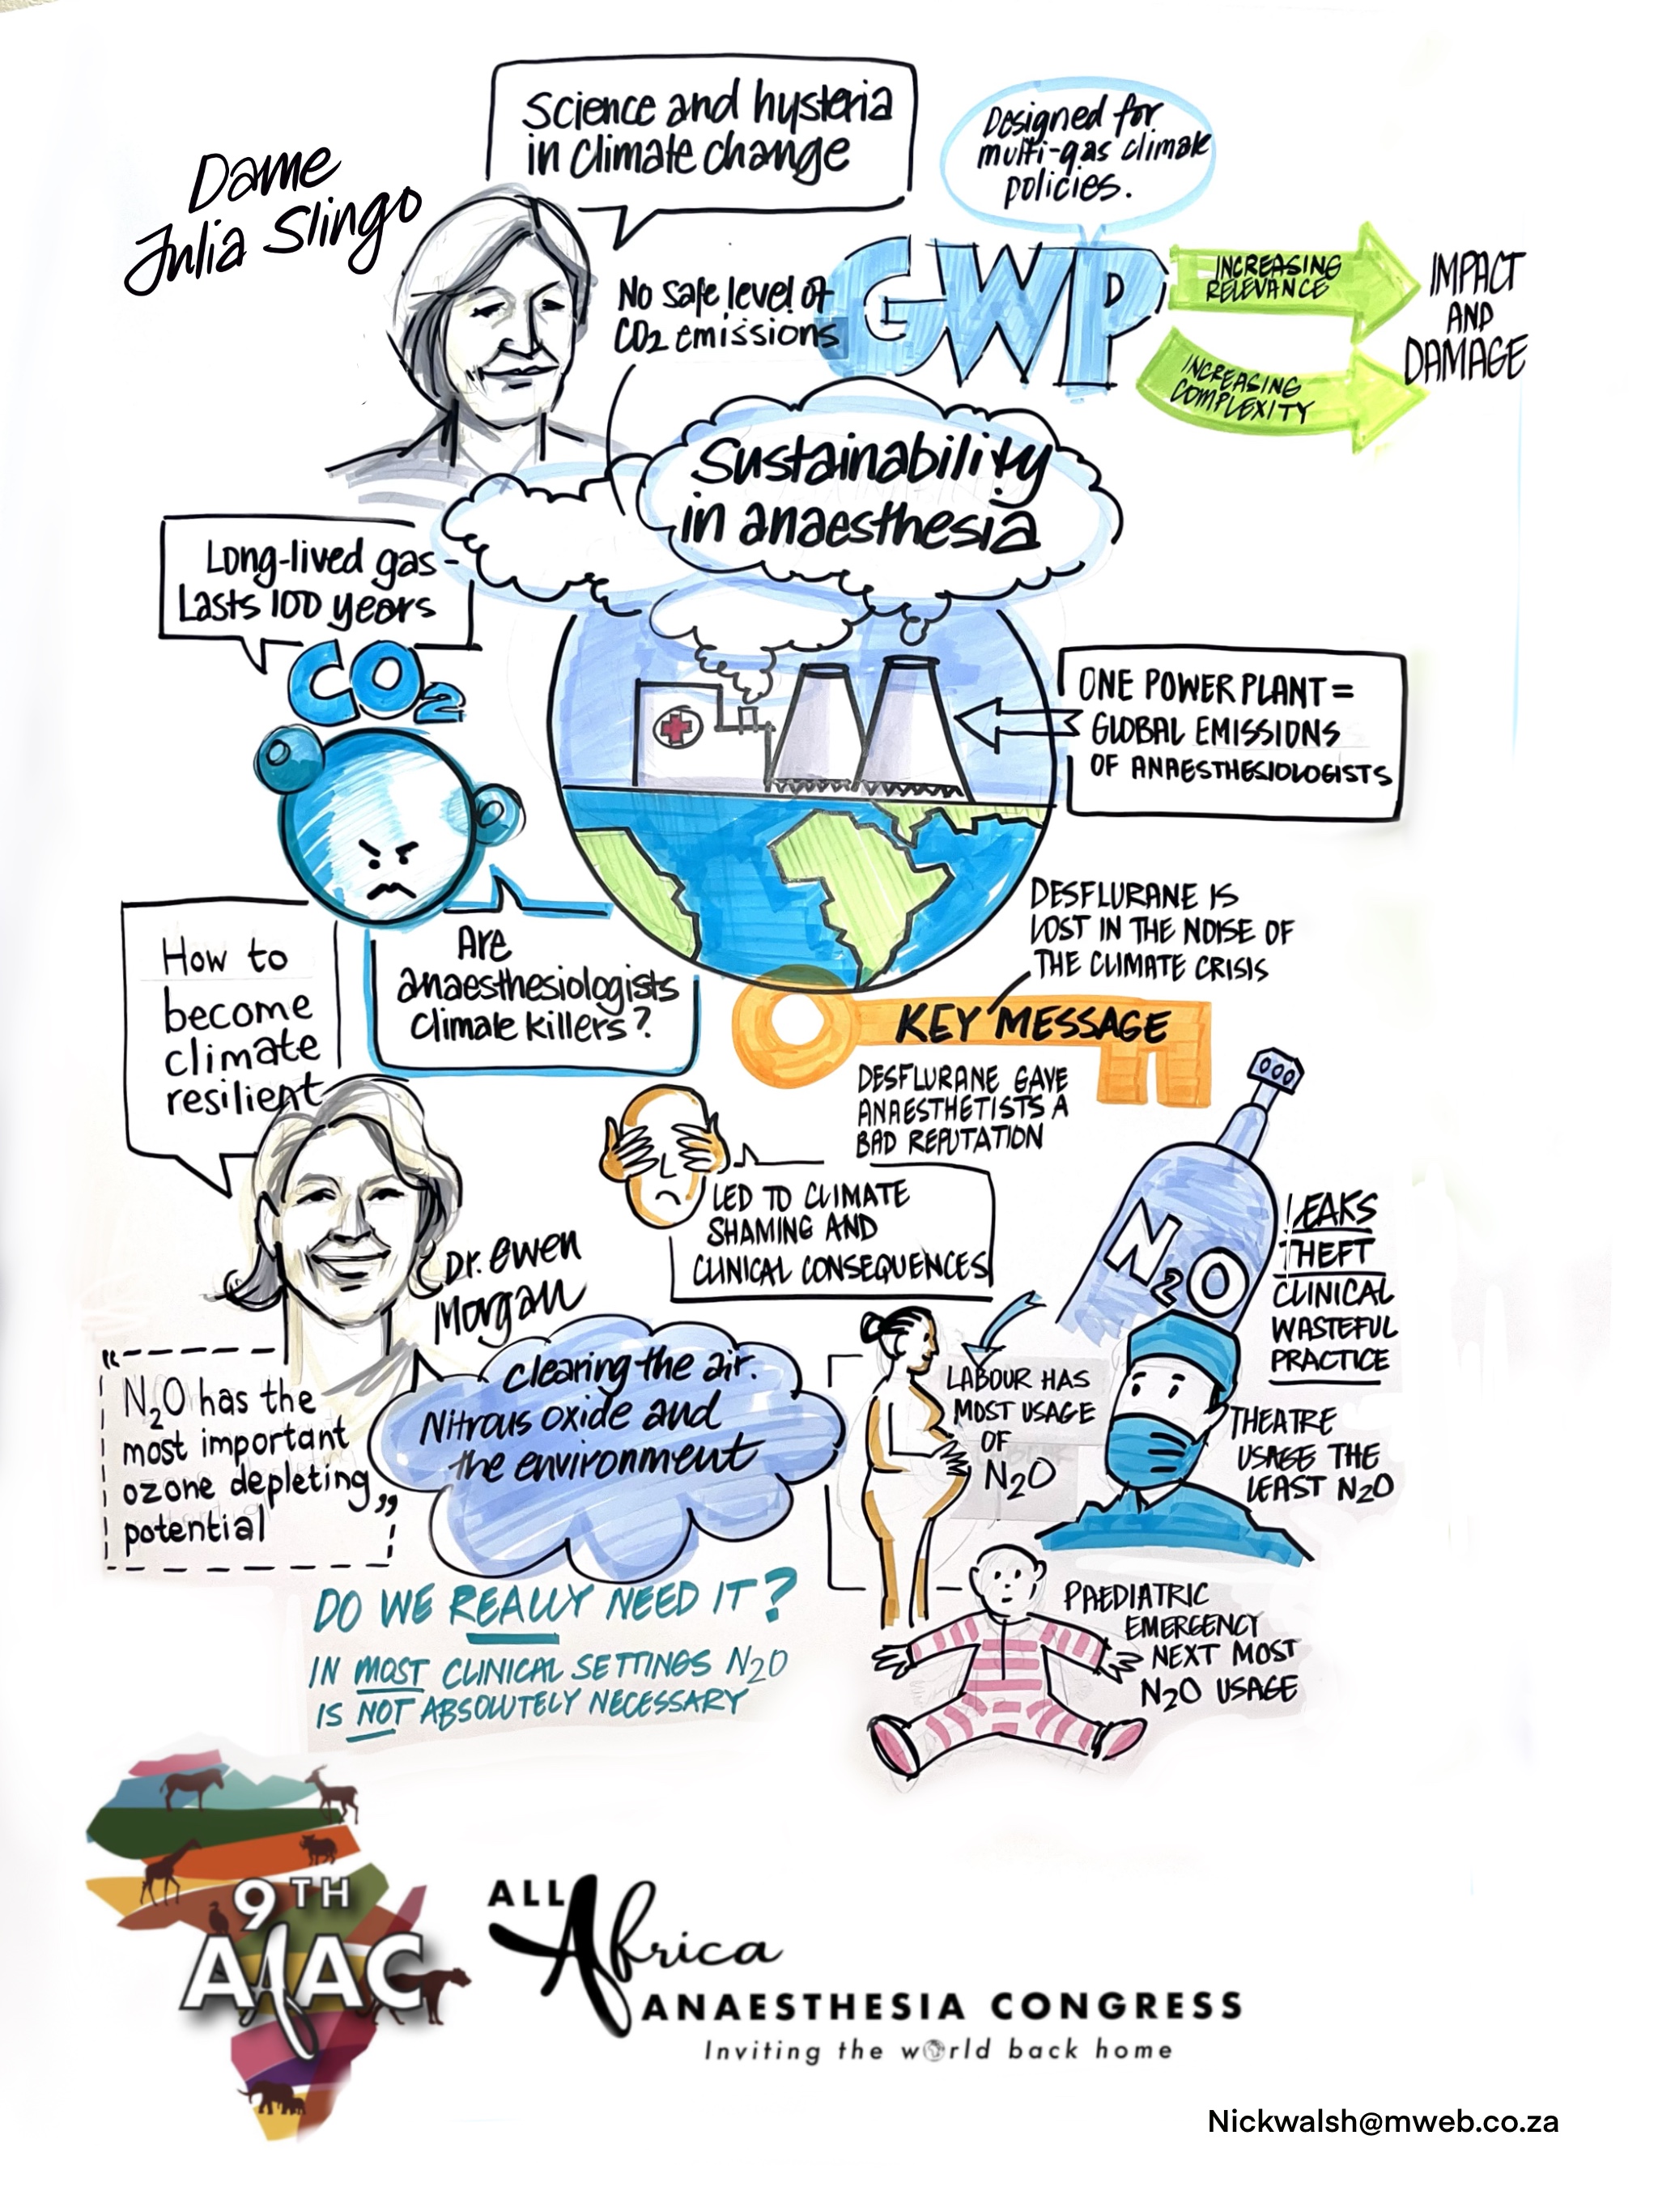 Dame
Julia Slingo
Science and hysteria
in climate change
Designed for
multi-gas climate
policies.
No safe level of
CO2 emissions
GWP
INCREASING
RELEVANCE
INCREASING
COMPLEXITY
IMPACT
AND
DAMAGE
Sustainability
in anaesthesia
Long-lived gas -
Lasts 100 years
CO2
ONE POWER PLANT =
GLOBAL EMISSIONS
OF ANAESTHESIOLOGISTS
How to
become
climate
resilient
Are
anaesthesiologists
climate killers?
DESFLURANE IS
LOST IN THE NOISE OF
THE CLIMATE CRISIS
KEY MESSAGE
DESFLURANE GAVE
ANAESTHETISTS A
BAD REPUTATION
LED TO CLIMATE
SHAMING AND
CLINICAL CONSEQUENCES
Dr. Ewen
Morgan
N2O
LEAKS
THEFT
CLINICAL
WASTEFUL
PRACTICE
"N2O has the
most important
ozone depleting"
potential
Clearing the air.
Nitrous oxide and
the environment
LABOUR HAS
MOST USAGE
OF
N2O
THEATRE
USAGE THE
LEAST N2O
DO WE REALLY NEED IT?
IN MOST CLINICAL SETTINGS N2O
IS NOT ABSOLUTELY NECESSARY
PAEDIATRIC
EMERGENCY
NEXT MOST
N2O USAGE
9TH
AfAC
ALL
Africa
ANAESTHESIA CONGRESS
Inviting the world back home
Nickwalsh@mweb.co.za